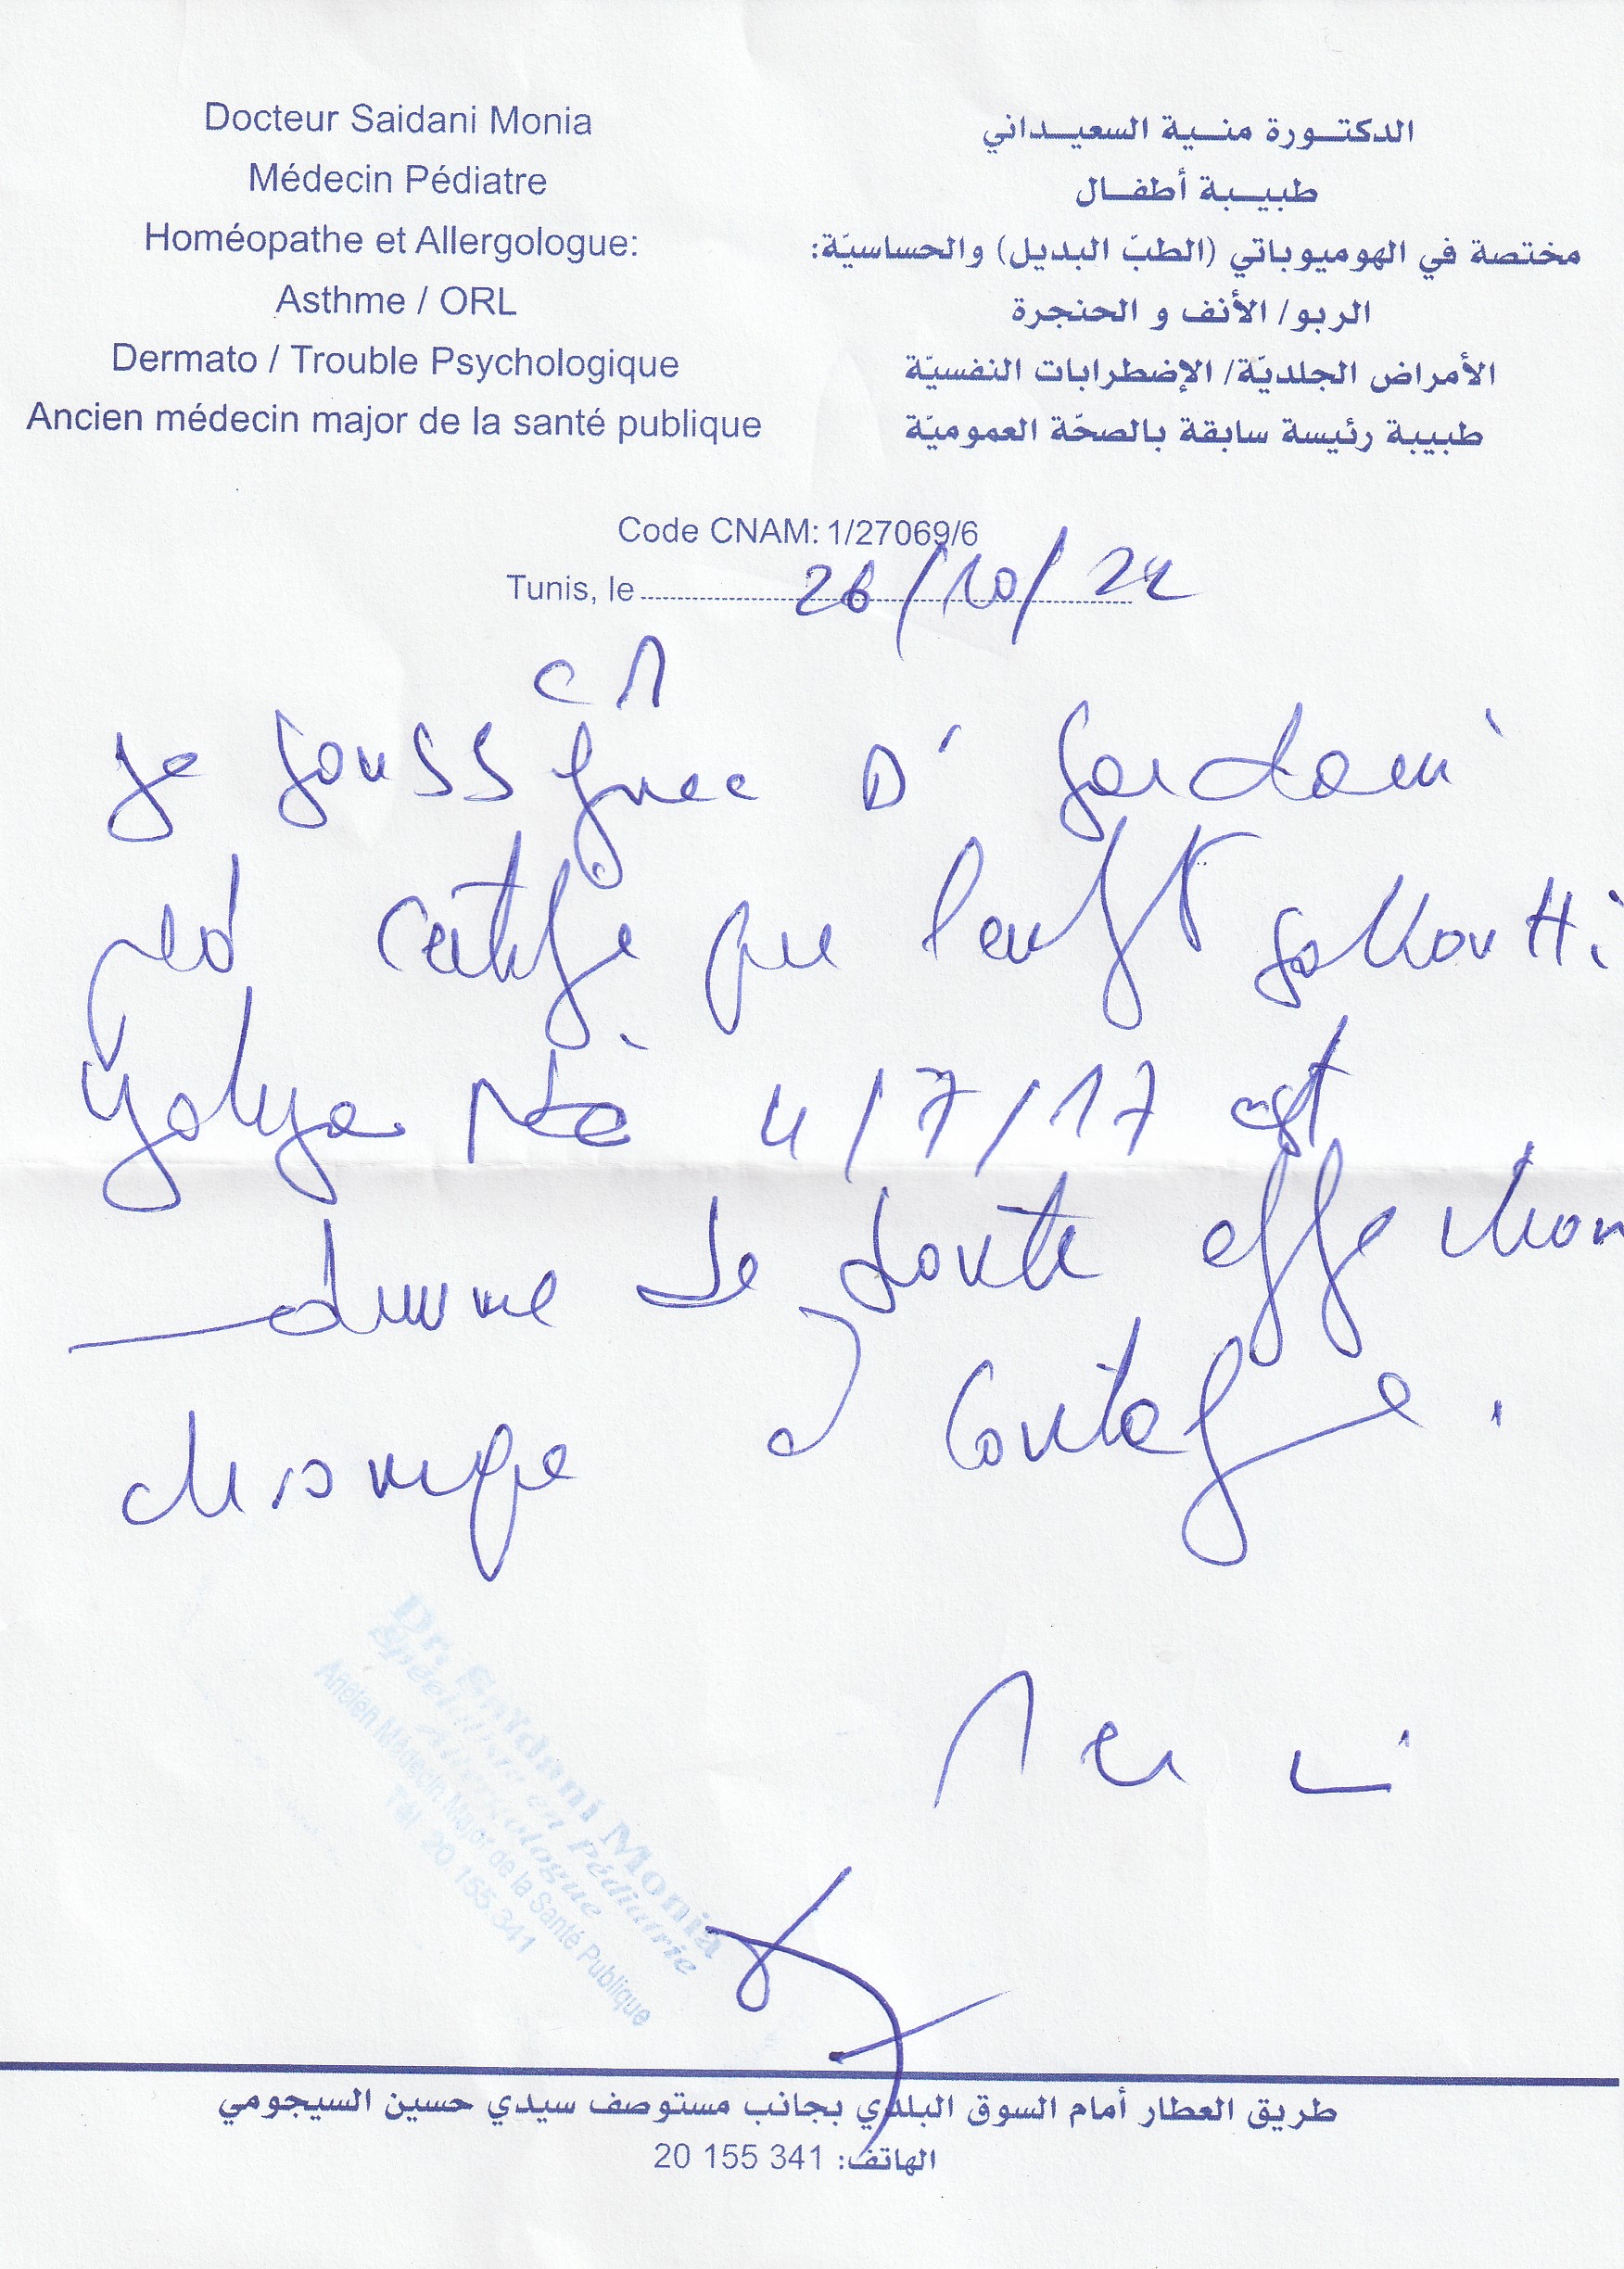 Docteur Saidani Monia
Médecin Pédiatre
Homéopathe et Allergologue:
Asthme / ORL
Dermato / Trouble Psychologique
Ancien médecin major de la santé publique
الدكتـورة منـية السعيـداني
طبيـبة أطفـال
مختصة في الهوميوباتي (الطبّ البديل) والحساسيّة:
الربو/ الأنف و الحنجرة
الأمراض الجلديّة/ الإضطرابات النفسيّة
طبيبة رئيسة سابقة بالصحّة العموميّة
Code CNAM: 1/27069/6
Tunis, le 26/10/22
Je soussignée Dr Saidani
ped certifie que l'enft
Yahya Né 4/7/17 est
de toute affection
chronique et contagieuse.
Merci
Dr. Saïdani Monia
Spécialiste en Pédiatrie
Allergologue
Ancien Médecin Major de la Santé Publique
Tél 20 155 341
طريق العطار أمام السوق البلدي بجانب مستوصف سيدي حسين السيجومي
الهاتف: 341 155 20